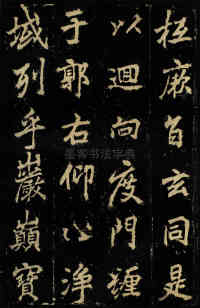 柱厥旨玄同是
以迴向度門纏
于郭右仰心淨
域列乎巖巔寶